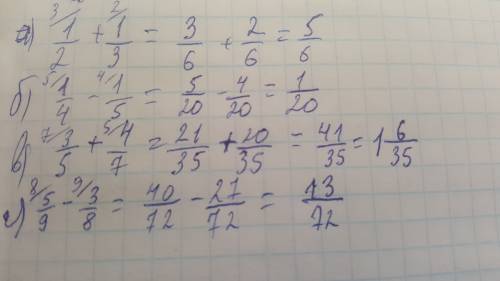 а) ³⁄1/2 + ²⁄1/3 = 3/6 + 2/6 = 5/6
б) ⁵⁄1/4 - ⁴⁄1/5 = 5/20 - 4/20 = 1/20
в) ⁷⁄3/5 + ⁵⁄4/7 = 21/35 + 20/35 = 41/35 = 1 6/35
г) ⁸⁄5/9 - ⁹⁄3/8 = 40/72 - 27/72 = 13/72